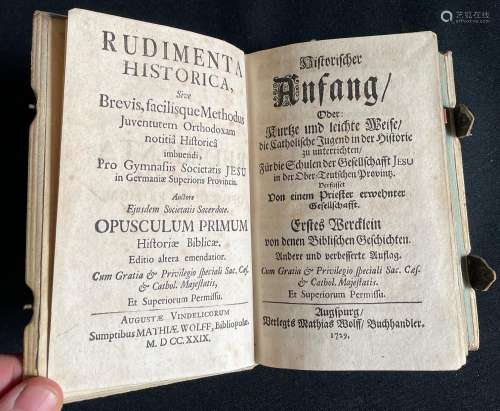 RUDIMENTA
HISTORICA,
Sive
Brevis, facilisque Methodus
Juventutem Orthodoxam
notitiâ Historicâ
imbuendi,
Pro Gymnasiis Societatis JESU
in Germaniæ Superioris Provincia.
Auctore
Ejusdem Societatis Sacerdote.
OPUSCULUM PRIMUM
Historiæ Biblicæ.
Editio altera emendatior.
Cum Gratia & Privilegio speciali Sac. Cæs.
& Cathol. Majestatis,
Et Superiorum Permissu.
AUGUSTÆ VINDELICORUM
Sumptibus MATHIÆ WOLFF, Bibliopolæ.
M DCC.XXIX.
Historischer
Anfang/
Oder:
Kurtze und leichte Weise/
die Catholische Jugend in der Historie
zu unterrichten/
Für die Schulen der Gesellschafft JESU
in der Ober-Teutschen Provintz.
Verfasset
Von einem Priester erwehnter
Gesellschafft.
Erstes Wercklein
von denen Biblischen Geschichten.
Andere und verbesserte Auflag.
Cum Gratia & Privilegio speciali Sac. Cæs.
& Cathol. Majestatis.
Et Superiorum Permissu.
Augspurg/
Verlegts Mathias Wolff/ Buchhandler.
1729.